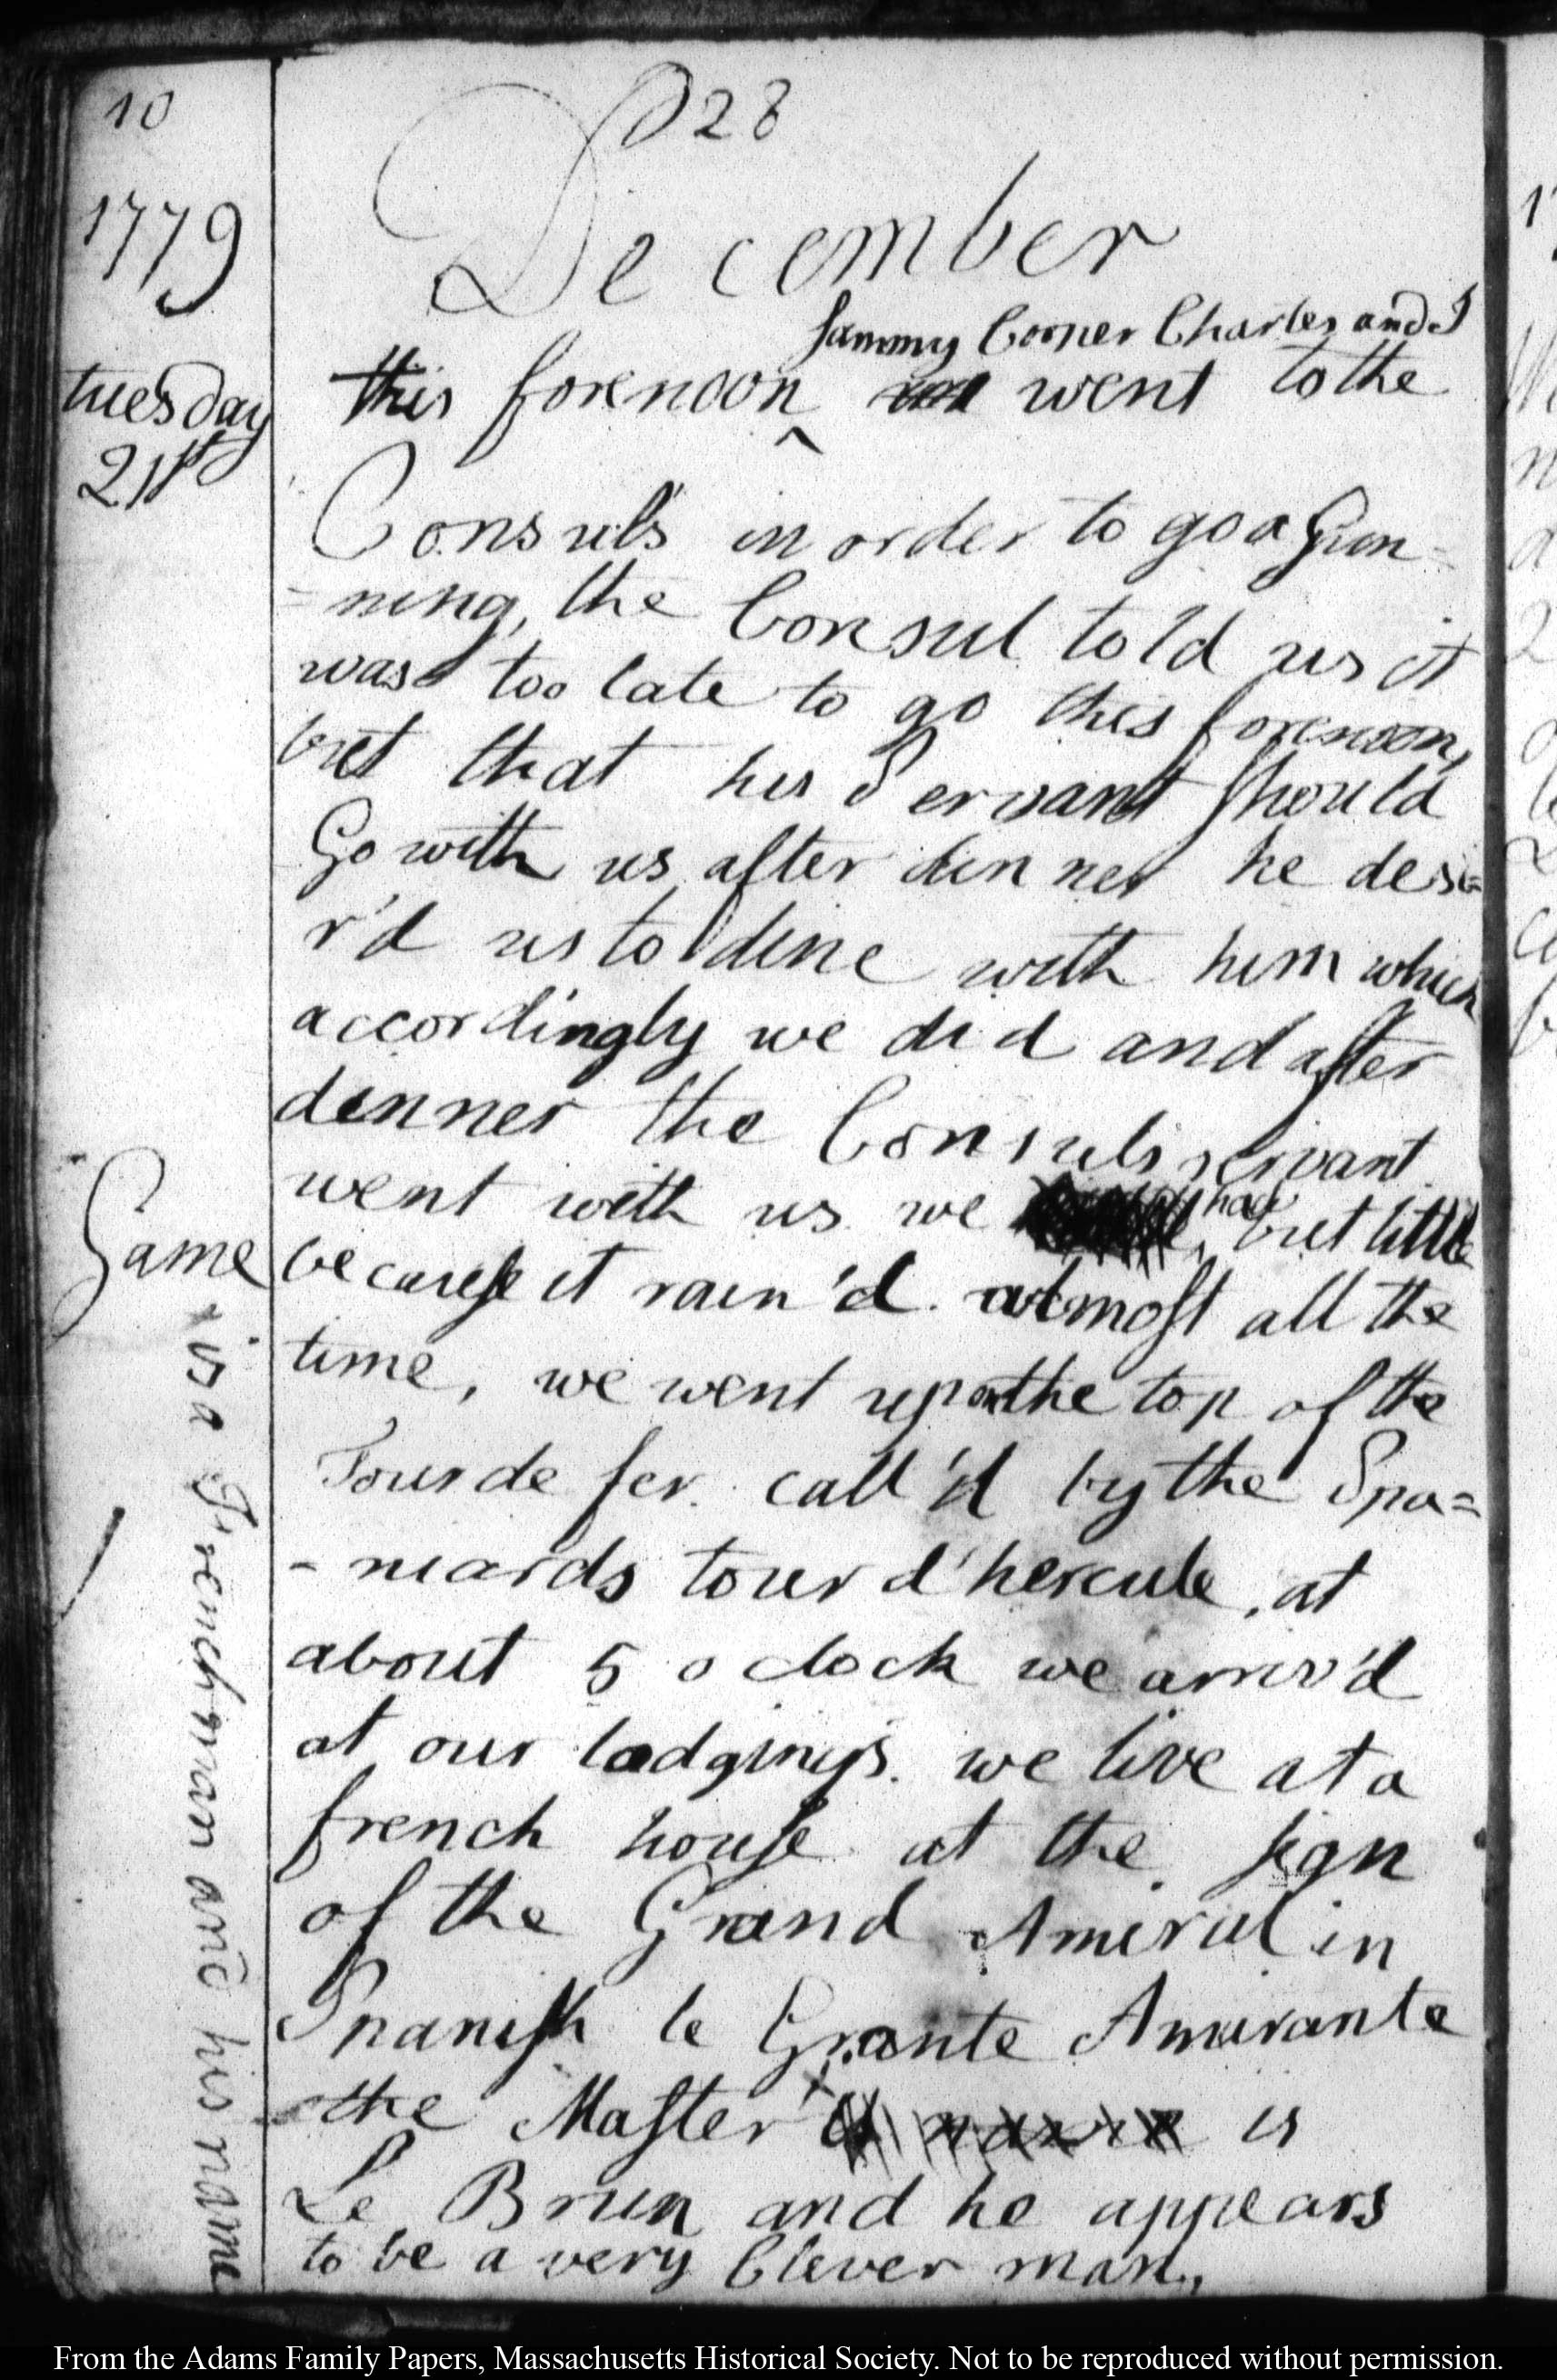 10
D 28
1779
December
Sammy Cooper Charles and I
tuesday
21st
this forenoon ^ we went to the
Consul's in order to go a Gun=
=ning, the Consul told us it
was too late to go this forenoon,
but that his Servant should
Go with us after dinner he desi=
r'd us to dine with him which
accordingly we did and after
dinner the Consuls servant
went with us we had but little
Game
because it rain'd almost all the
time, we went upon the top of the
Tour de fer. call'd by the Spa=
-niards tour d'hercule, at
about 5 o clock we arriv'd
at our lodgings. we live at a
french house at the sign
of the Grand Amiral in
Spanish le Grante Amirante
the Master x is name is
Le Brun and he appears
to be a very Clever man,
x is a Frenchman and his name
From the Adams Family Papers, Massachusetts Historical Society. Not to be reproduced without permission.